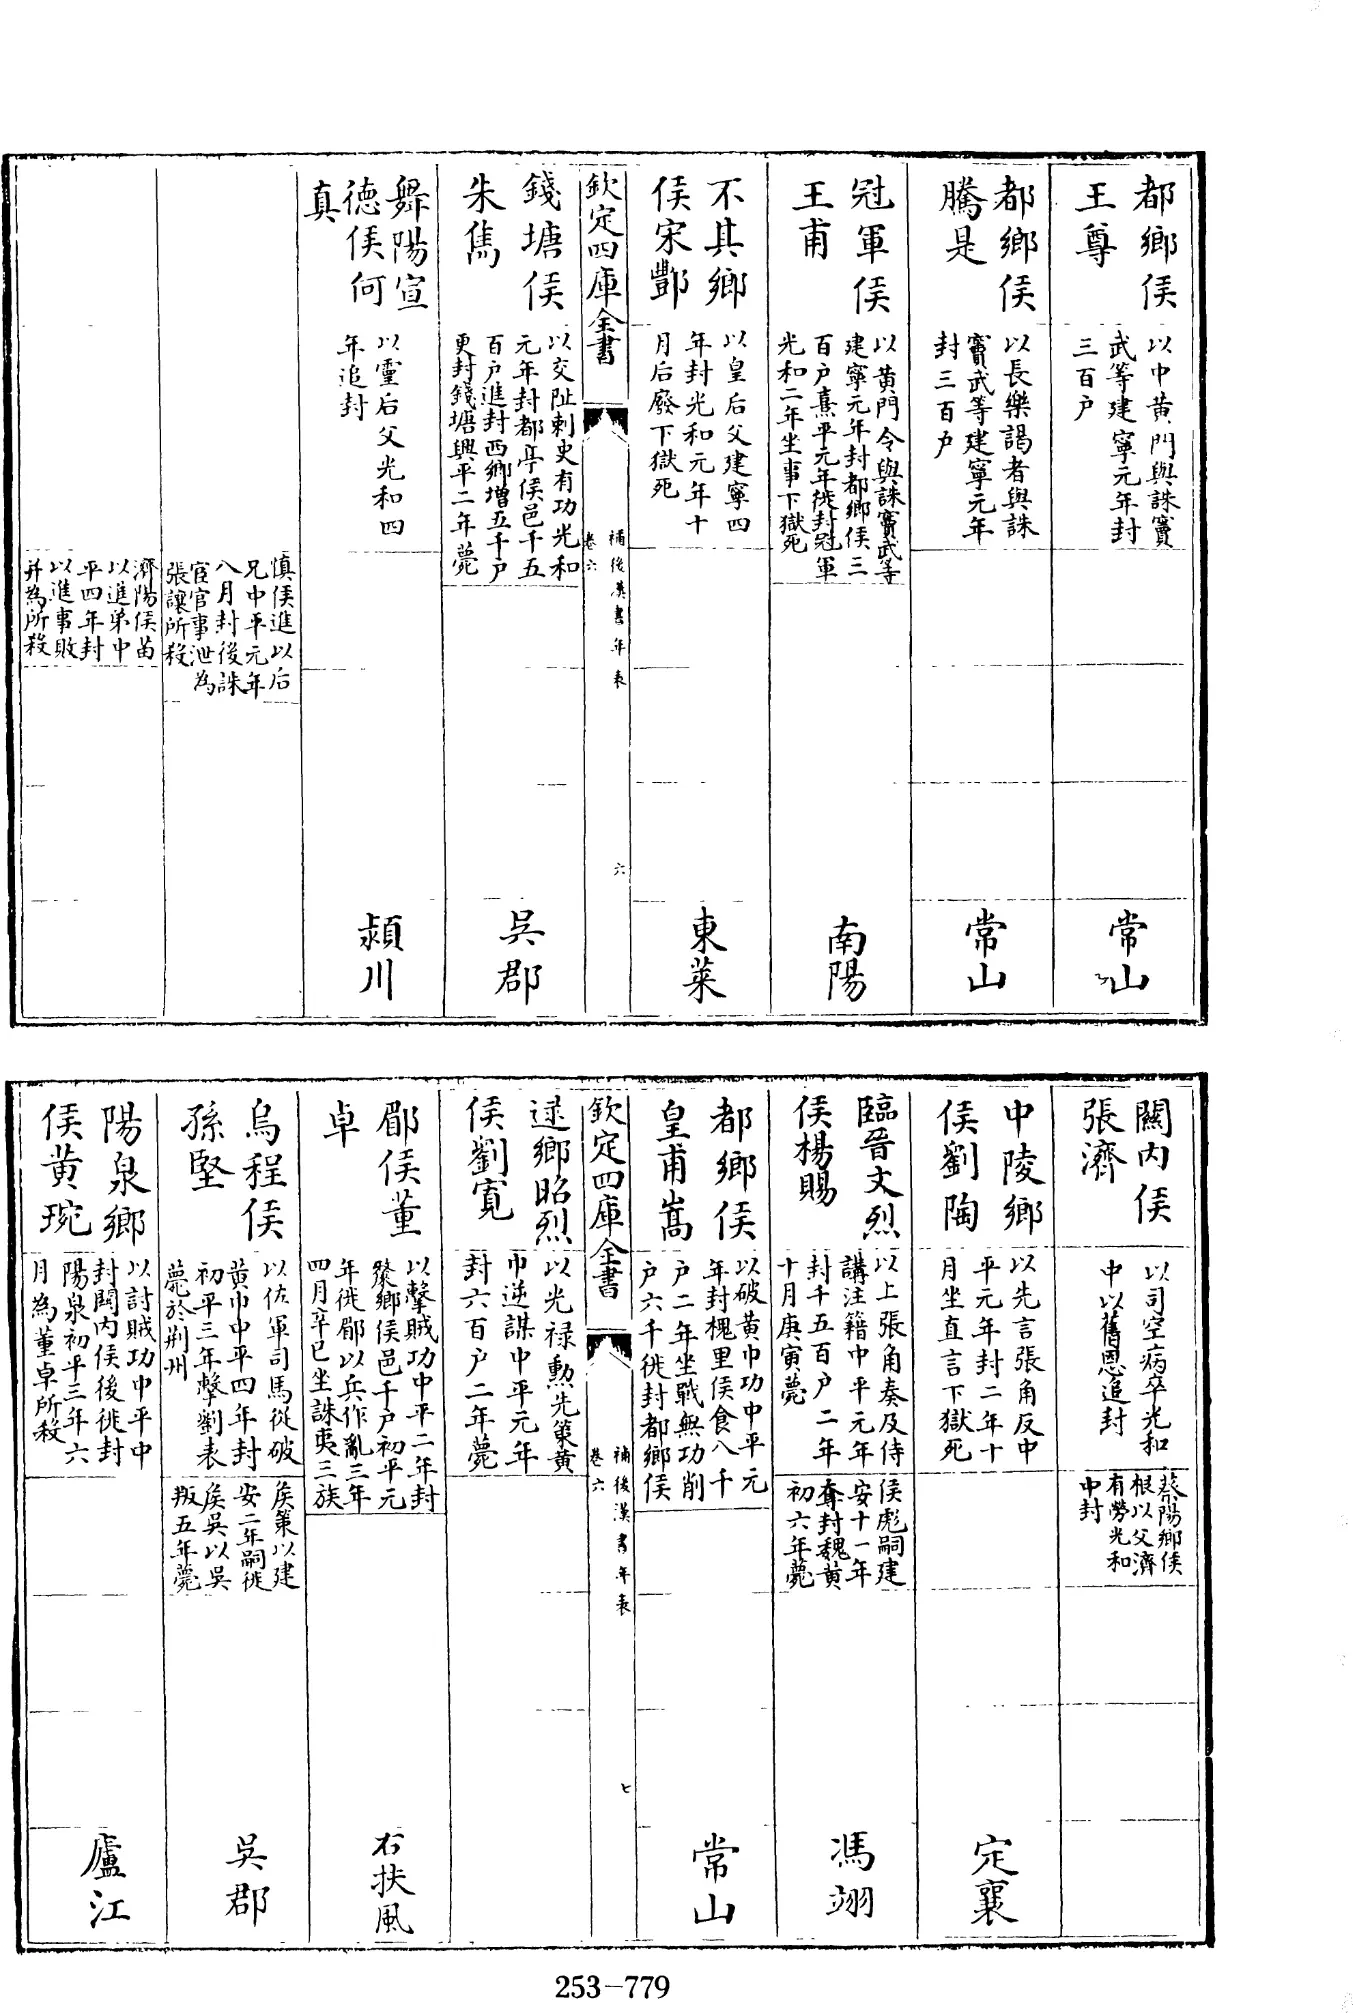 都鄉侯
王尊
以中黄門與誅竇
武等建寧元年封
三百户
常山
都鄉侯
騰是
以長樂謁者與誅
竇武等建寧元年
封三百户
常山
冠軍侯
王甫
以黄門令與誅竇武等
建寧元年封都鄉侯三
百户熹平元年徙封冠軍
光和二年坐事下獄死
南陽
不其鄉
侯宋酆
以皇后父建寧四
年封光和元年十
月后廢下獄死
東萊
欽定四庫全書
補後漢書年表
卷六
六
錢塘侯
朱雋
以交阯刺史有功光和
元年封都亭侯邑千五
百户進封西鄉增五千户
更封錢塘興平二年薨
吳郡
舞陽宣
德侯何
真
以靈后父光和四
年追封
潁川
慎侯進以后
兄中平元年
八月封後誅
宦官事泄為
張讓所殺
濟陽侯苗
以進弟中
平四年封
以進事敗
并為所殺
關内侯
張濟
以司空病卒光和
中以舊恩追封
蔡陽鄉侯
根以父濟
有勞光和
中封
中陵鄉
侯劉陶
以先言張角反中
平元年封二年十
月坐直言下獄死
定襄
臨晉文烈
侯楊賜
以上張角奏及侍
講注籍中平元年
封千五百户二年
十月庚寅薨
侯彪嗣建
安十一年
奪封魏黄
初六年薨
馮翊
都鄉侯
皇甫嵩
以破黄巾功中平元
年封槐里侯食八千
户二年坐戰無功削
户六千徙封都鄉侯
常山
欽定四庫全書
補後漢書年表
卷六
七
逯鄉昭烈
侯劉寬
以光禄勲先策黄
巾逆謀中平元年
封六百户二年薨
郿侯董
卓
以擊賊功中平二年封
斄鄉侯邑千户初平元
年徙郿以兵作亂三年
四月辛巳坐誅夷三族
右扶風
烏程侯
孫堅
以佐軍司馬從破
黄巾中平四年封
初平三年擊劉表
薨於荆州
侯策以建
安二年嗣徙
侯吳以吳
叛五年薨
吳郡
陽泉鄉
侯黄琬
以討賊功中平中
封關内侯後徙封
陽泉初平三年六
月為董卓所殺
廬江
253-779